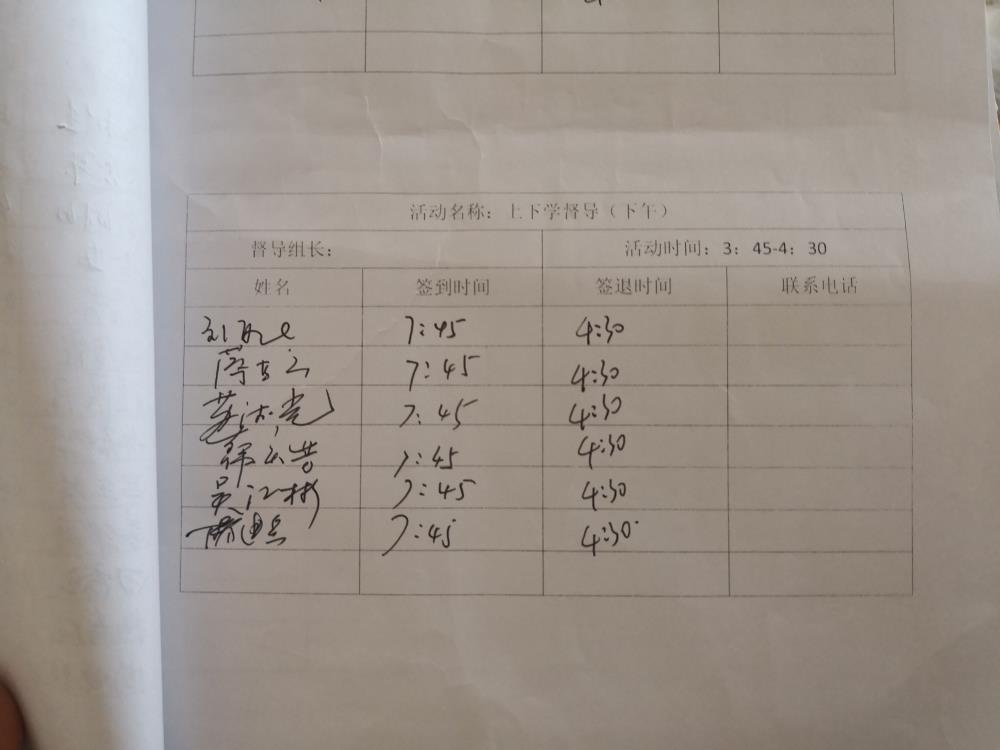 活动名称：上下学督导（下午）
督导组长： 活动时间：3：45-4：30
姓名 签到时间 签退时间 联系电话
7:45 4:30
7:45 4:30
7:45 4:30
7:45 4:30
吴江彬 7:45 4:30
7:45 4:30